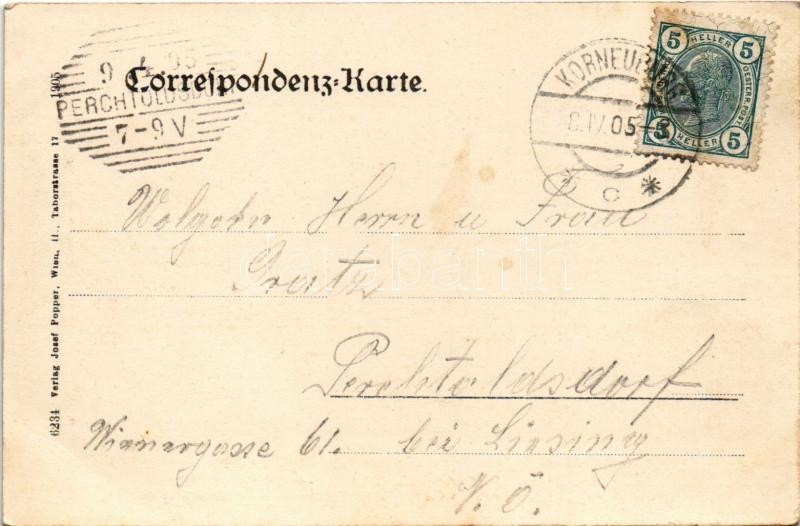 9 4 05
PERCHTOLDSDORF
7-9 V
Correspondenz-Karte.
KORNEUBURG
8.IV.05-3
* C *
5 HELLER 5
OESTERR.POST
5 HELLER 5
Wolgeb. Herrn u Frau
Perchtoldsdorf
Wienergasse 61. bei Liesing
N. Ö.
6234 Verlag Josef Popper, Wien, II., Taborstrasse 17 1905
darabanth